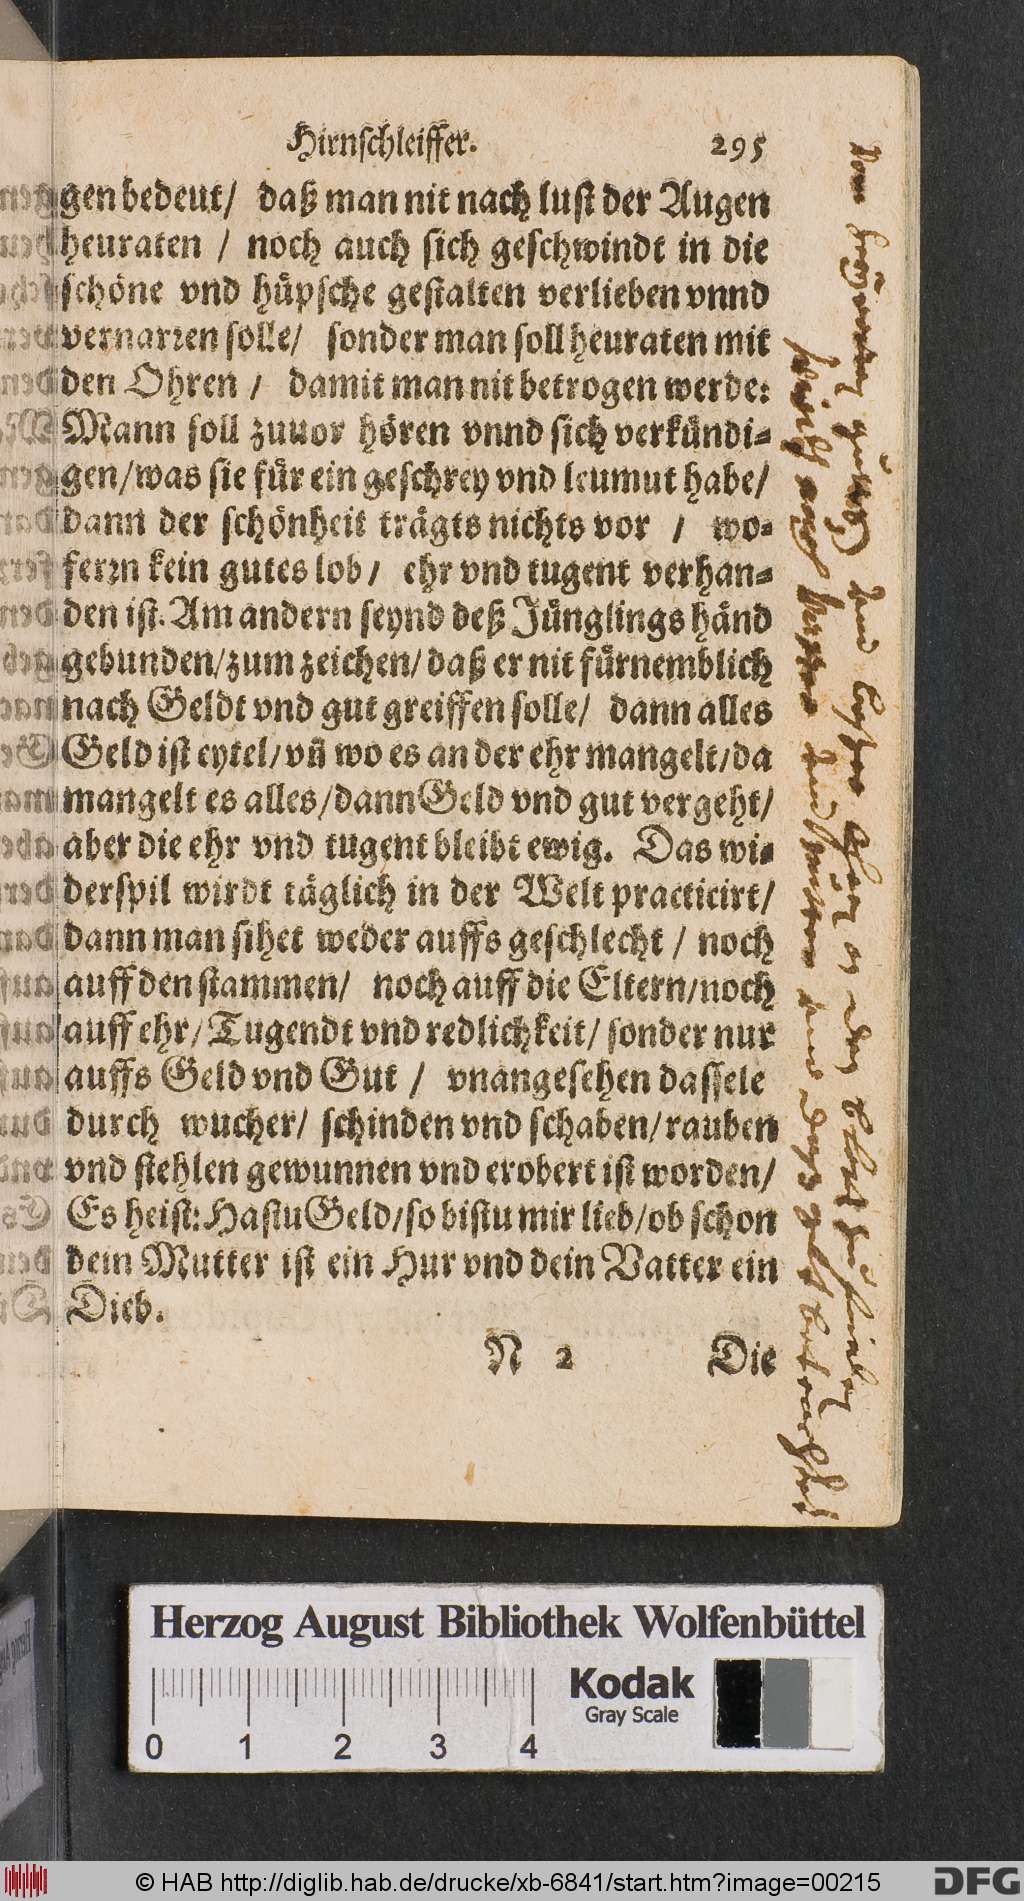 Hirnschleiffer. 295
gen bedeut/ daß man nit nach lust der Augen
heuraten / noch auch sich geschwindt in die
schöne vnd hüpsche gestalten verlieben vnnd
vernarꝛen solle/ sonder man soll heuraten mit
den Ohren / damit man nit betrogen werde:
Mann soll zuuor hören vnnd sich verkündi-
gen/was sie für ein geschrey vnd leumut habe/
dann der schönheit trägts nichts vor / wo-
ferꝛn kein gutes lob / ehr vnd tugent verhan-
den ist. Am andern seynd deß Jünglings händ
gebunden/zum zeichen/ daß er nit fürnemblich
nach Geldt vnd gut greiffen solle/ dann alles
Geld ist eytel/vñ wo es an der ehr mangelt/da
mangelt es alles/dann Geld vnd gut vergeht/
aber die ehr vnd tugent bleibt ewig. Das wi-
derspil wirdt täglich in der Welt practicirt/
dann man sihet weder auffs geschlecht / noch
auff den stammen/ noch auff die Eltern/noch
auff ehr/Tugendt vnd redlichkeit/ sonder nur
auffs Geld vnd Gut / vnangesehen dassele
durch wucher/ schinden vnd schaben/rauben
vnd stehlen gewunnen vnd erobert ist worden/
Es heist: Hastu Geld/so bistu mir lieb/ob schon
dein Mutter ist ein Hur vnd dein Vatter ein
Dieb.
N 2 Die
Herzog August Bibliothek Wolfenbüttel
Kodak
Gray Scale
0 1 2 3 4
© HAB http://diglib.hab.de/drucke/xb-6841/start.htm?image=00215
DFG